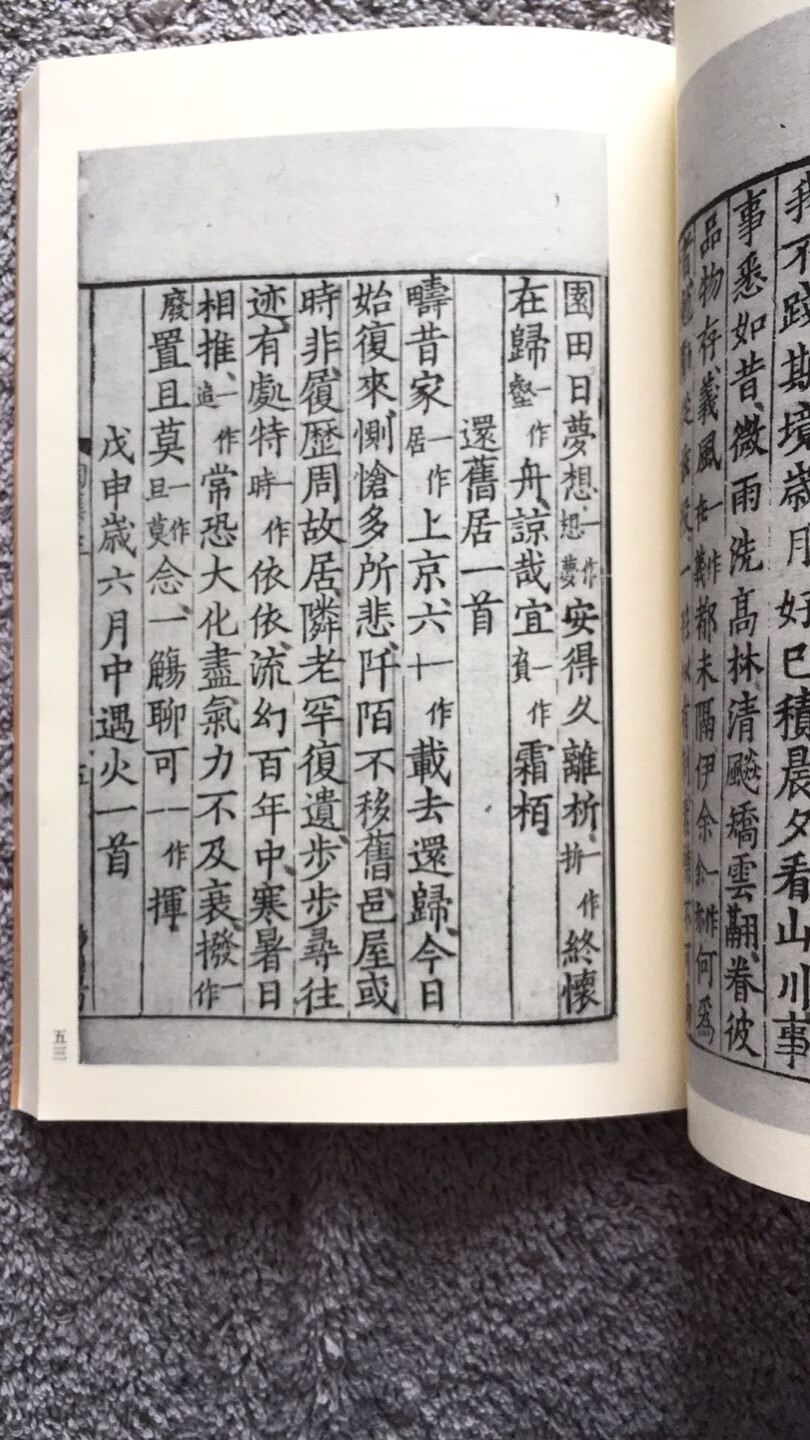 我不踐斯境歲月好巳積晨夕看山川事
事悉如昔、微雨洗高林清飈矯雲翮、眷彼
品物存、義風一作在義都未隔伊余一作余亦何爲
園田日夢想、一作想夢安得久離析、一作折終懷
在歸一作壑舟、諒哉宜一作負霜栢、
還舊居一首
疇昔家一作居上京、六一作十載去還歸、今日
始復來、惻愴多所悲、阡陌不移舊、邑屋或
時非、履歷周故居、隣老罕復遺、步步尋往
迹、有處特一作時依依、流幻百年中、寒暑日
相推、一作追常恐大化盡氣力不及衰、撥一作
廢置且莫一作且莫念、一觴聊可一作揮、
戊申歲六月中遇火一首
五三